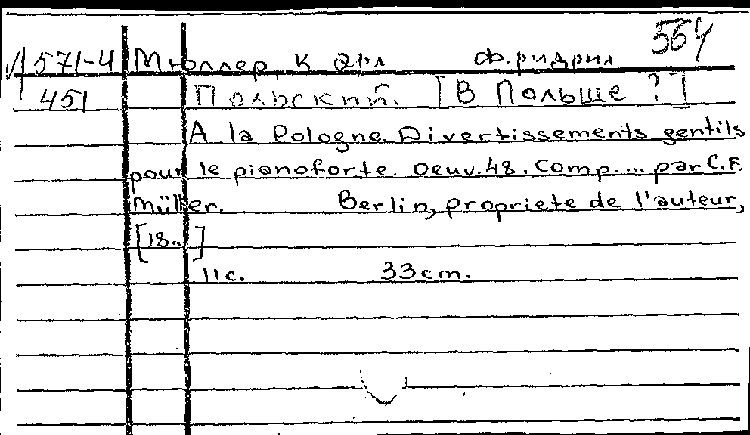 564
V 571-4 Мюллер, Карл Фридрих
451 Польский. [В Польше?]
A la Pologne. Divertissements gentils
pour le pianoforte. Oeuv. 48. Comp.... par C.F.
Müller. Berlin, propriete de l'auteur,
[18..]
11 c. 33 cm.